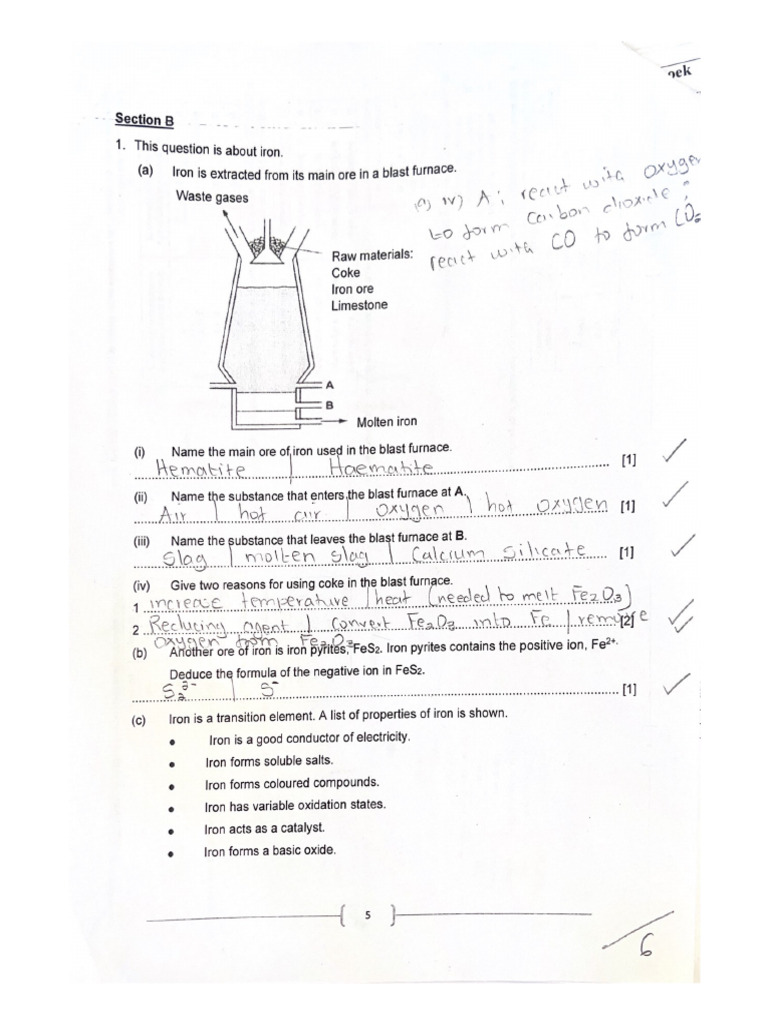 oek
Section B
1. This question is about iron.
(a) Iron is extracted from its main ore in a blast furnace.
(a) iv) A: react with oxygen
to form carbon dioxide;
react with CO to form CO2
Waste gases
Raw materials:
Coke
Iron ore
Limestone
A
B
Molten iron
(i) Name the main ore of iron used in the blast furnace.
Hematite | Haematite [1]
(ii) Name the substance that enters the blast furnace at A.
Air | hot air | oxygen | hot oxygen [1]
(iii) Name the substance that leaves the blast furnace at B.
Slag | molten slag | Calcium Silicate [1]
(iv) Give two reasons for using coke in the blast furnace.
1 increace temperature | heat (needed to melt Fe2O3)
2 Reducing agent | convert Fe2O3 into Fe | remove [2]
oxygen from Fe2O3
(b) Another ore of iron is iron pyrites, FeS2. Iron pyrites contains the positive ion, Fe2+.
Deduce the formula of the negative ion in FeS2.
S2 2- | S- [1]
(c) Iron is a transition element. A list of properties of iron is shown.
• Iron is a good conductor of electricity.
• Iron forms soluble salts.
• Iron forms coloured compounds.
• Iron has variable oxidation states.
• Iron acts as a catalyst.
• Iron forms a basic oxide.
{ 5 }
/6